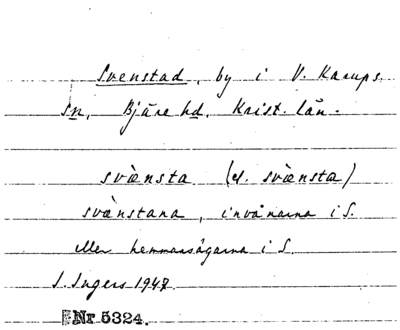 Svenstad, by i V. Karups.
sn, Bjäre hd, Krist. län.
svènsta (el. svænsta)
svànstana, invånarna i S.
eller hemmansägarna i S.
I. Ingers 1947.
Nr 5324.